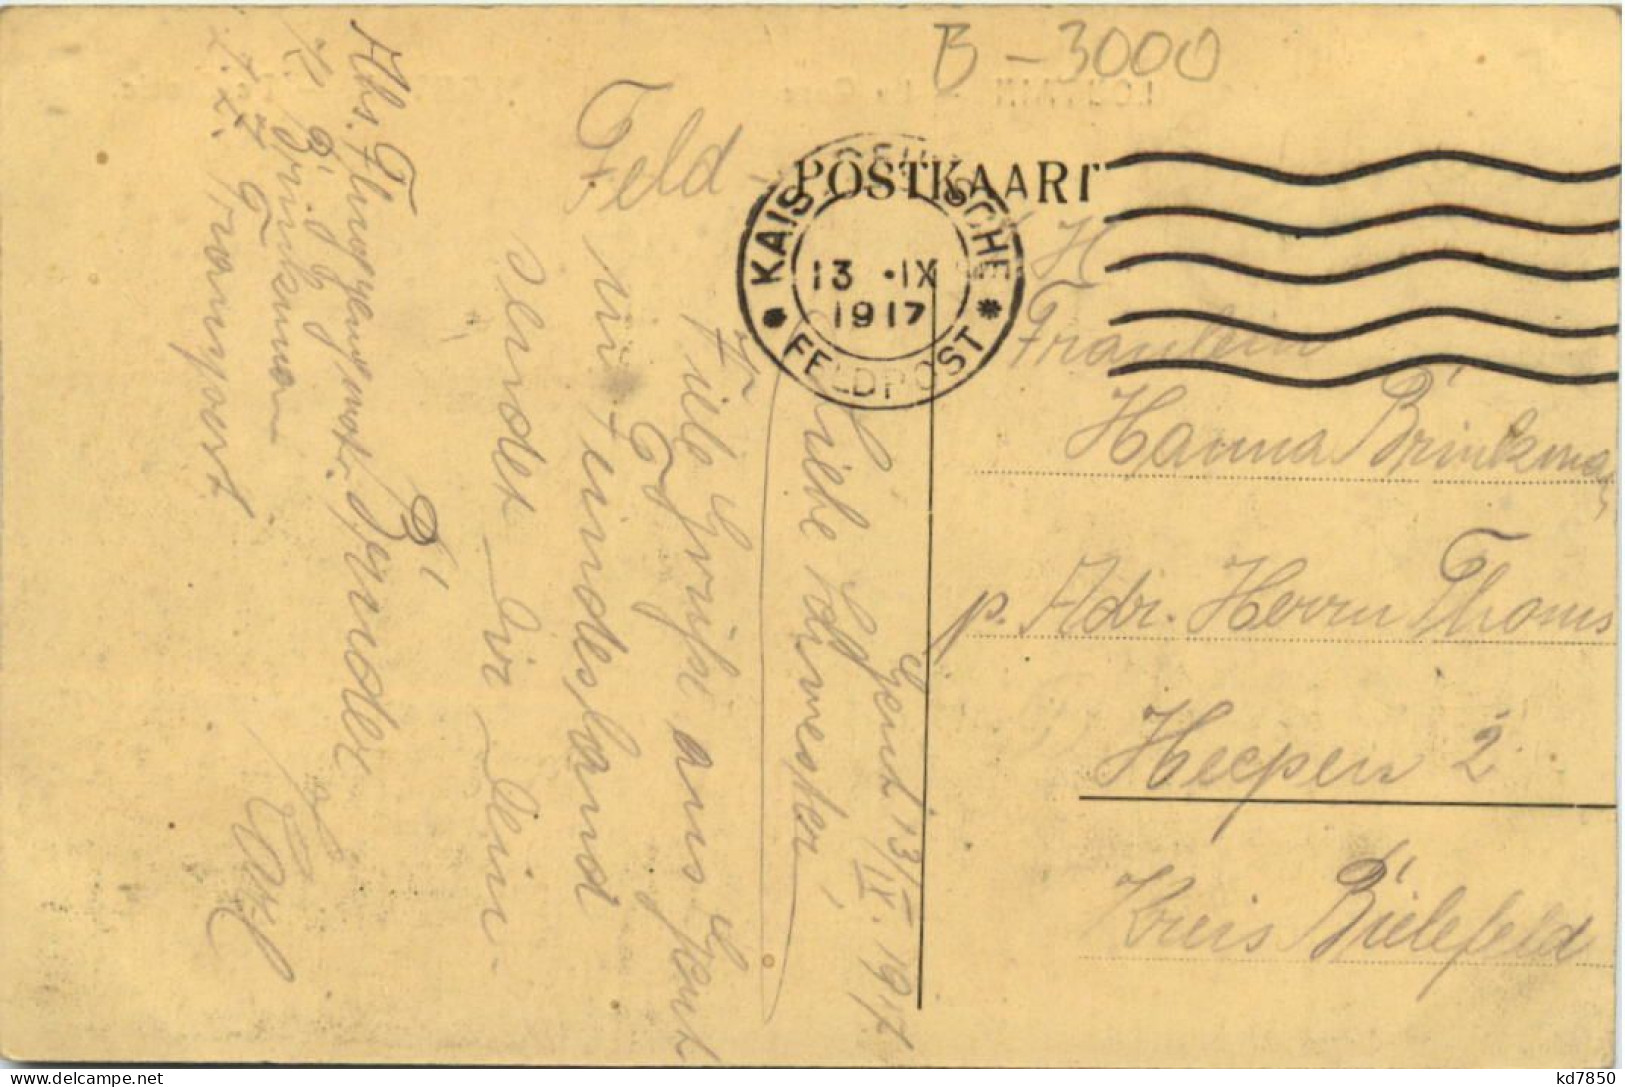 B - 3000
Feld -
POSTKAART
KAIS. DEUTSCHE
13 .IX
1917
FELDPOST
H
Fräulein
Hanna Brinkmann
p. Adr. Herrn Thoms
Heepen 2
Kreis Bielefeld
Gent 13/IX. 1917.
Liebe Schwester
Viele Grüße aus Gent
in Feindesland
sendet Dir Dein
Bruder
Karl
Abs. Flugzeugmat.
Brinkmann
Transport
kd7850